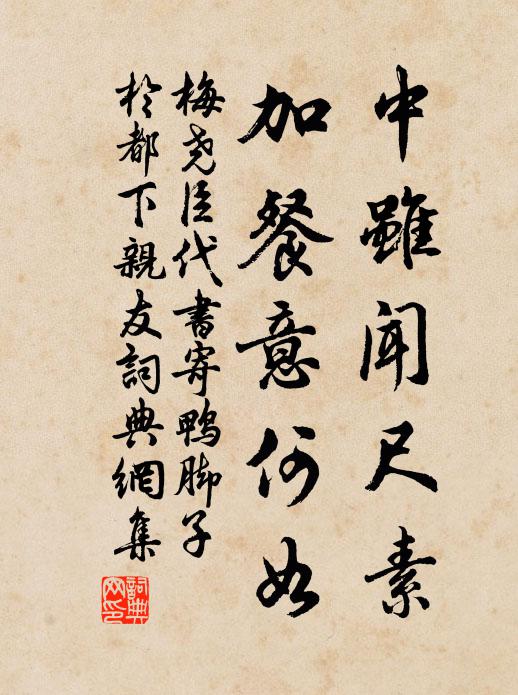 中雖聞尺素
加餐意何如
梅堯臣代書寄鴨脚子
於都下親友詞典網集
詞典網印